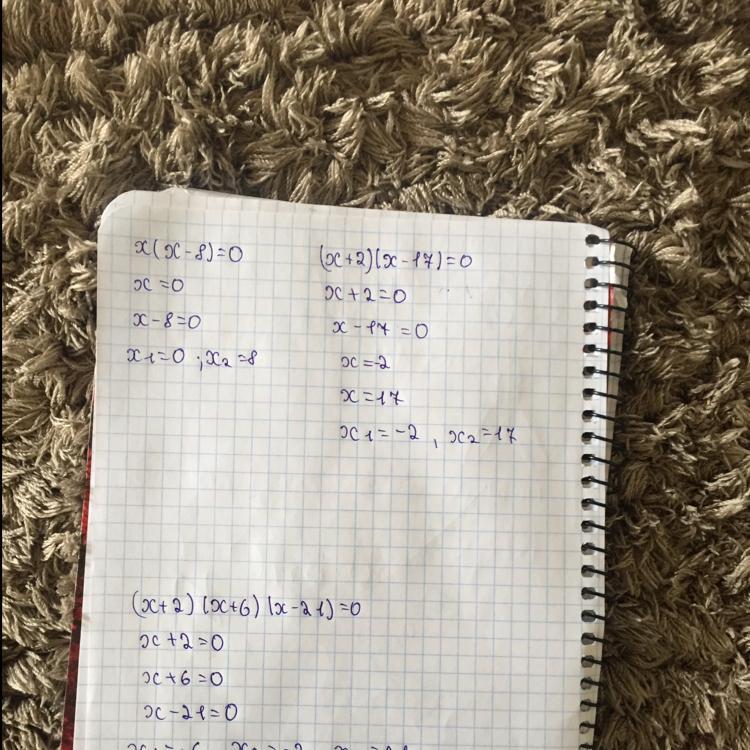 x(x-8)=0
x=0
x-8=0
x1=0 ; x2=8
(x+2)(x-17)=0
x+2=0
x-17=0
x=-2
x=17
x1=-2, x2=17
(x+2)(x+6)(x-21)=0
x+2=0
x+6=0
x-21=0